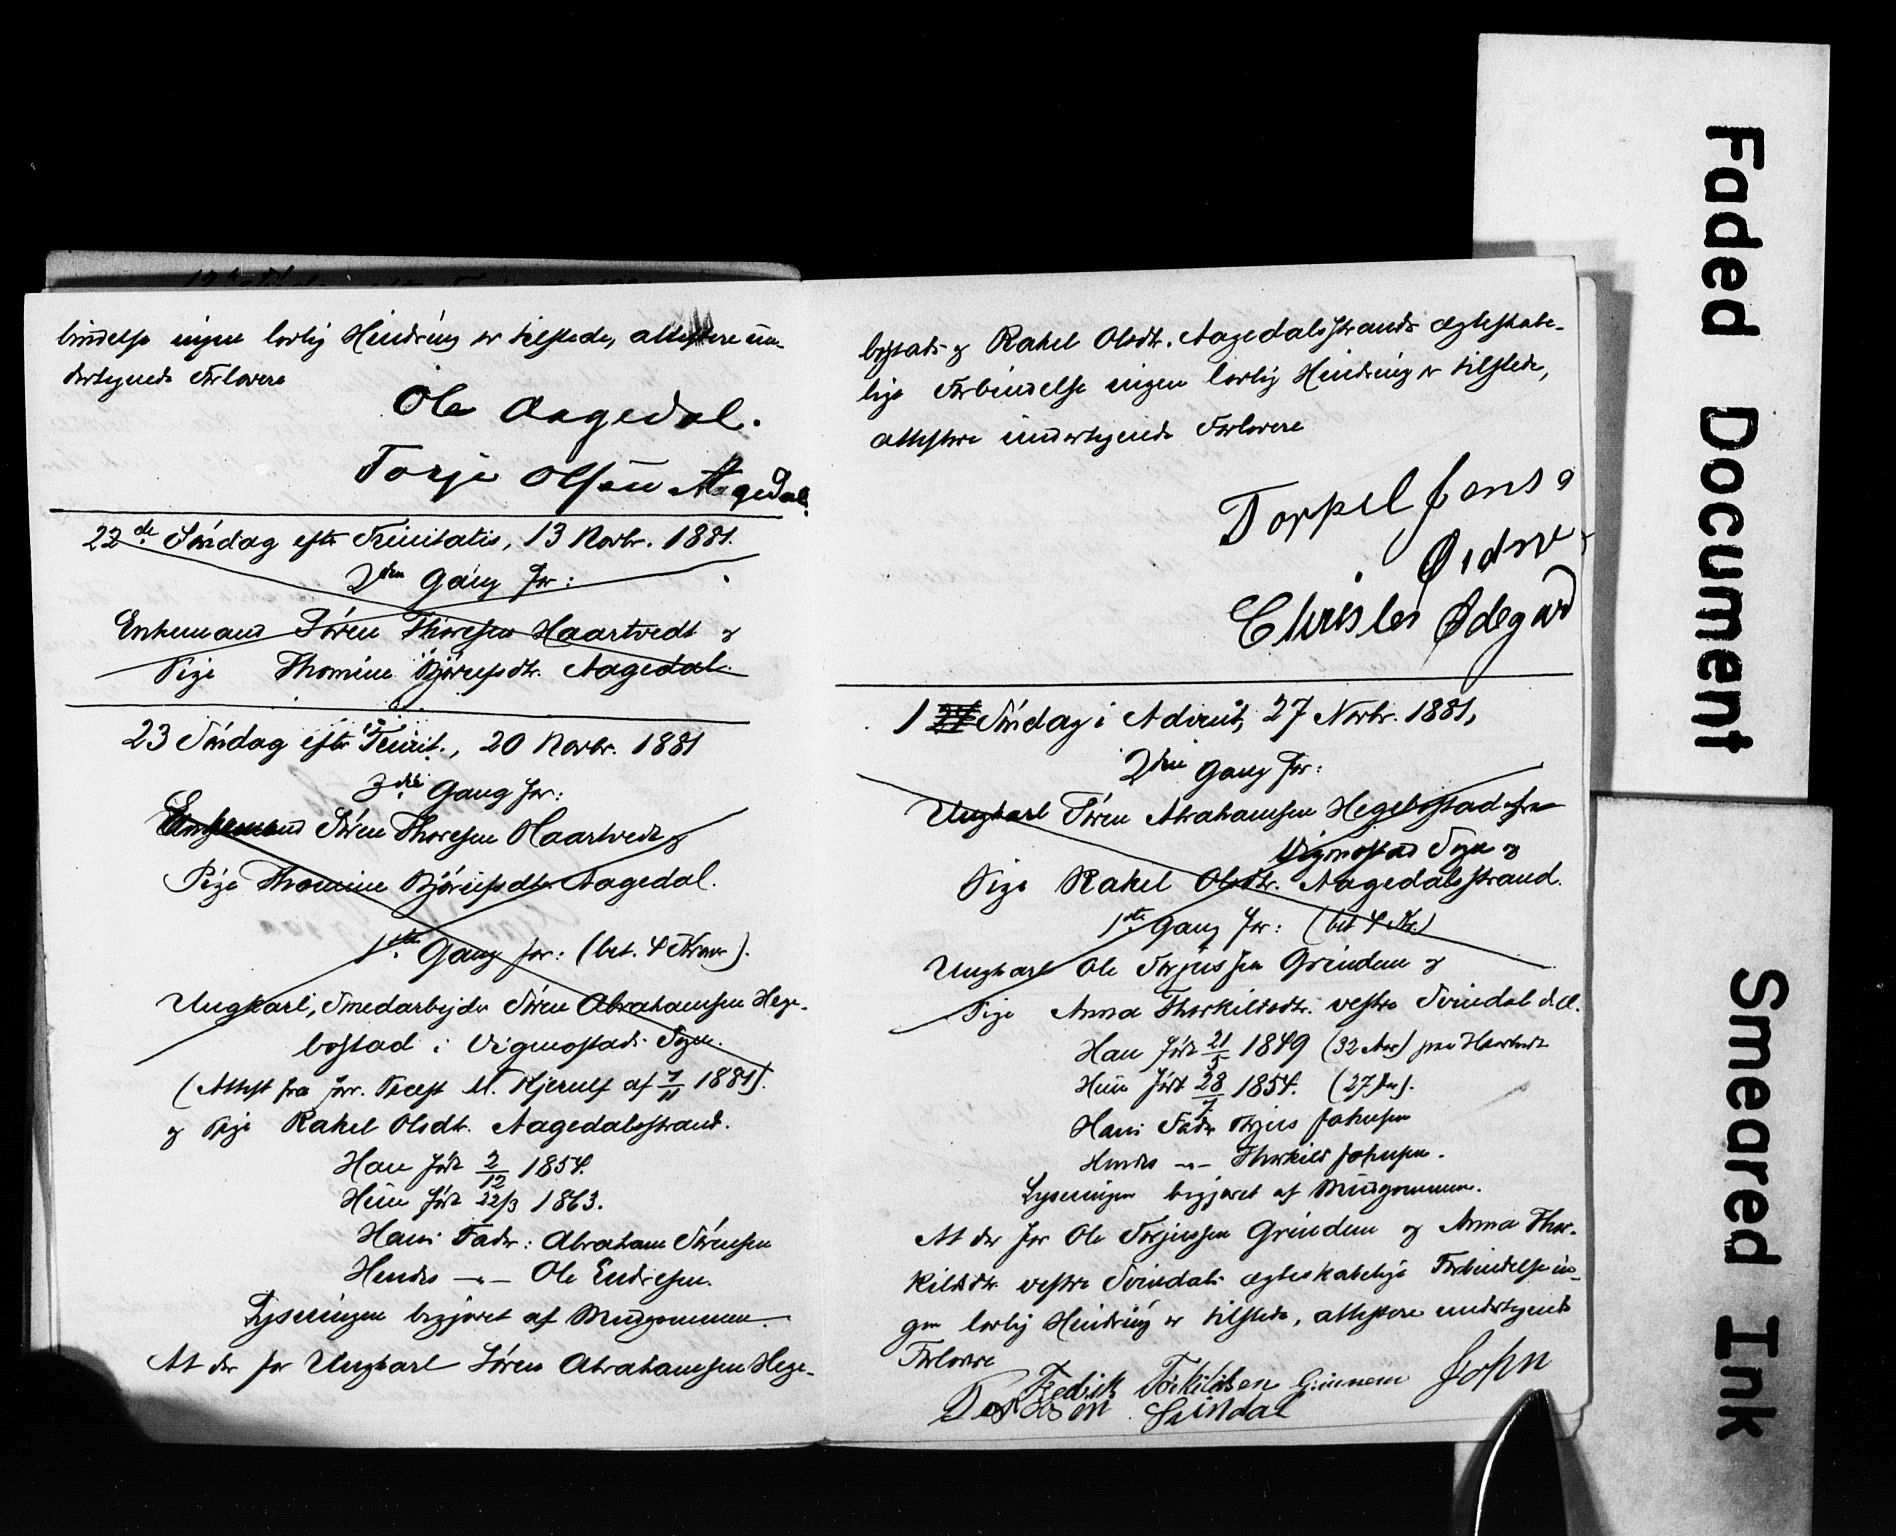 bindelse ingen lovlig Hindring er tilstede, attestere un-
dertegnede Forlovere
Ole Aagedal.
Torje Olsen Aagedal.
22de Søndag efter Trinitatis, 13 Novbr. 1881.
2den Gang for:
Enkemand Søren Thoresen Haartvedt og
Pige Thomine Bjørnsdtr. Aagedal.
23 Søndag efter Trinit., 20 Novbr. 1881
3die Gang for:
Enkemand Søren Thoresen Haartvedt og
Pige Thomine Bjørnsdtr. Aagedal.
1ste Gang for: (bet. 4 Kroner).
Ungkarl, Smedarbejder Søren Abrahamsen Hege-
bostad i Vigmostads Sogn.
(Attest fra Sgpr. M. Kjerulf af 7/11 1881).
og Pige Rakel Olsdtr. Aagedalsstrand.
Han født 2/12 1854.
Hun født 22/3 1863.
Hans Fader: Abraham Sørensen
Hendes —"— Ole Endresen.
Lysningen begjæret af Brudgommen.
At der for Ungkarl Søren Abrahamsen Hege-
bostads og Rakel Olsdtr. Aagedalsstrands ægteskabe-
lige Forbindelse ingen lovlig Hindring er tilstede,
attestere undertegnede Forlovere
Torkel Jens
Christen Ødegård
1 Søndag i Advent, 27 Novbr. 1881,
2den Gang for:
Ungkarl Søren Abrahamsen Hegebostad fra
Vigmostad Sogn og
Pige Rakel Olsdtr. Aagedalsstrand.
1ste Gang for: (bet 4 Kr.)
Ungkarl Ole Torjussen Grindem og
Pige Anna Thorkildsdtr. vestre Svindal
Han født 21/5 1849 (32 Aar)
Hun født 28/7 1854. (27 Aar).
Hans Fader Torjus Johnsen
Hendes —"— Thorkild Johnsen.
Lysningen begjæret af Brudgommen.
At der for Ole Torjussen Grindem og Anna Thor-
kildsdtr. vestre Svindals ægteskabelige Forbindelse in-
gen lovlig Hindring er tilstede, attestere undertegnede
Forlovere
Fredrik Torkildsen Grinnem John
Svindal
Faded Document
Smeared Ink